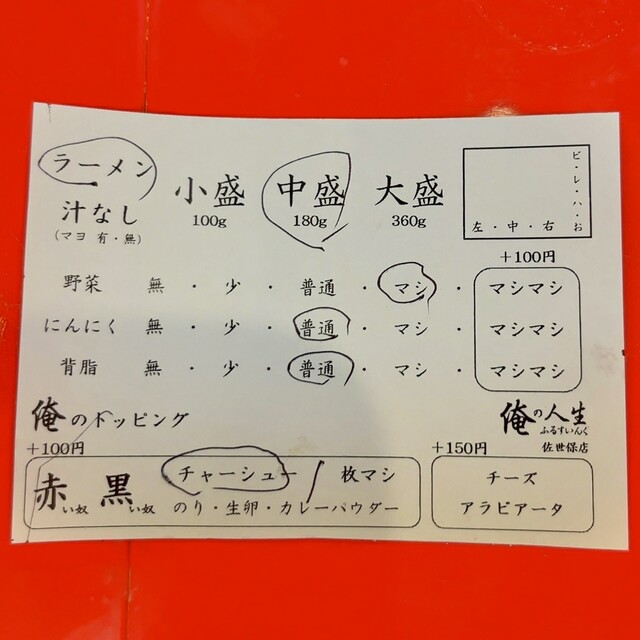 ラーメン
汁なし
(マヨ 有・無)
小盛
100g
中盛
180g
大盛
360g
ビ・レ・ハ・お
左・中・右
+100円
野菜 無・少・普通・マシ・マシマシ
にんにく 無・少・普通・マシ・マシマシ
背脂 無・少・普通・マシ・マシマシ
俺のトッピング
俺の人生
ふるすいんぐ
佐世保店
+100円
赤い奴 黒い奴
チャーシュー / 枚マシ
のり・生卵・カレーパウダー
+150円
チーズ
アラビアータ